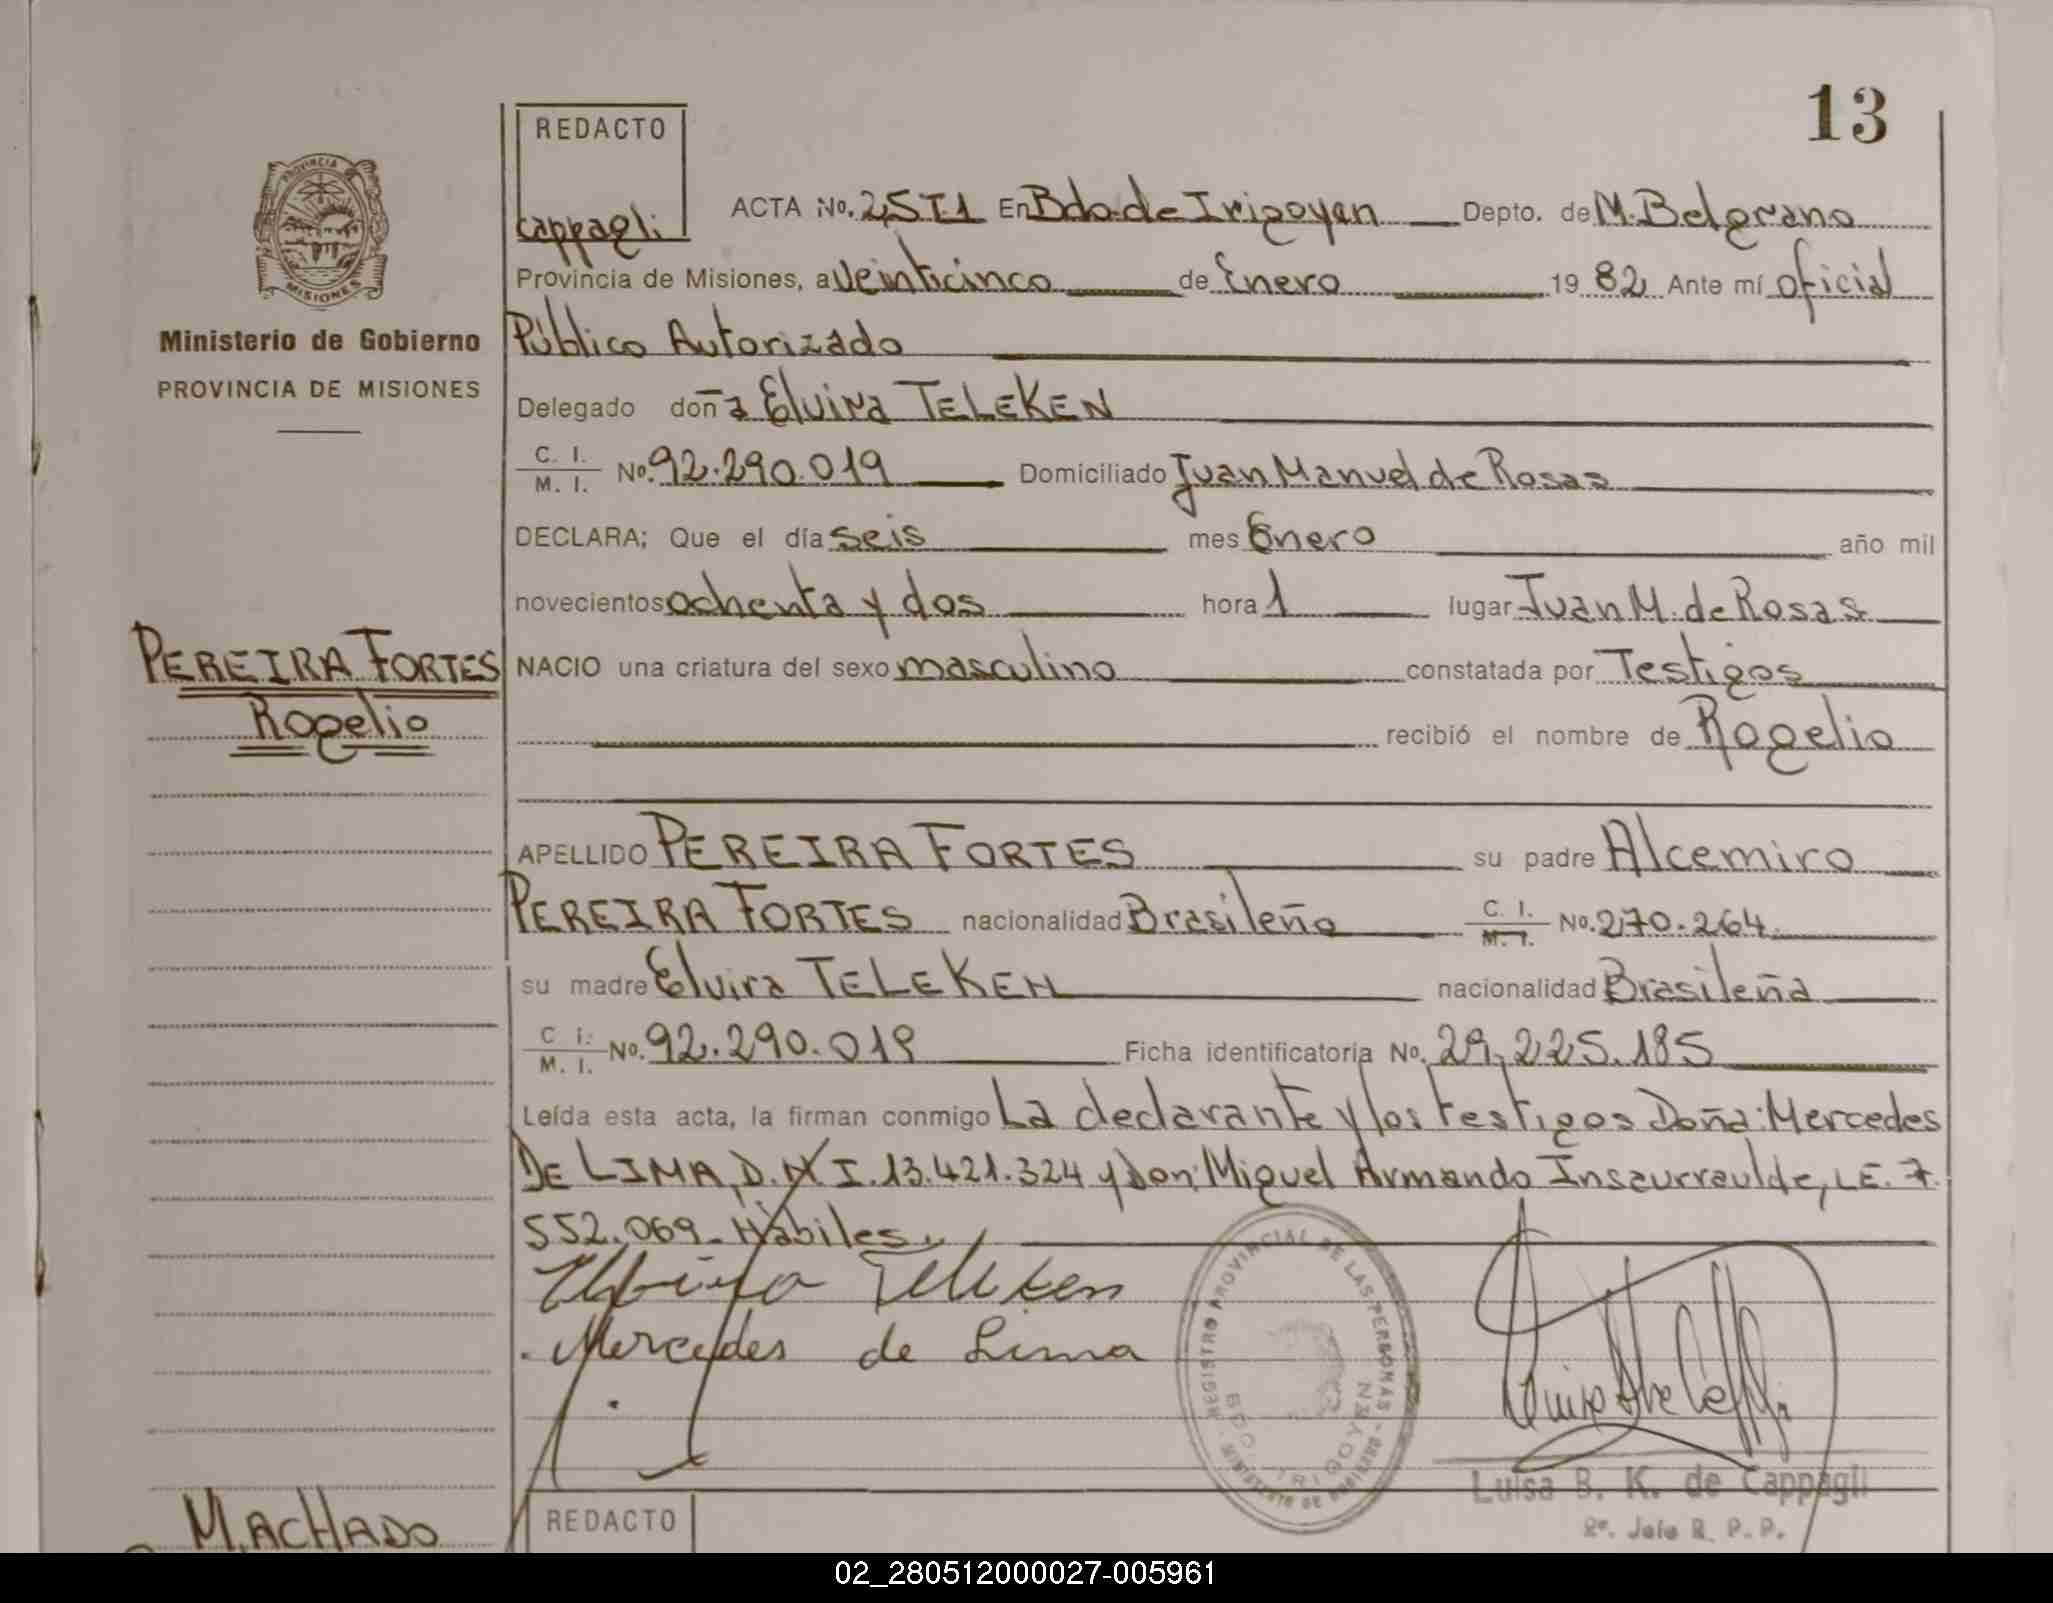 13
REDACTO
cappagli
PROVINCIA
MISIONES
Ministerio de Gobierno
PROVINCIA DE MISIONES
ACTA No. 25T1 En Bdo. de Irigoyen Depto. de M. Belgrano
Provincia de Misiones, a Veinticinco de Enero 1982 Ante mí oficial
Público Autorizado
Delegado doña Elvira TELEKEN
C. I. / M. I. No. 92.290.019 Domiciliado Juan Manuel de Rosas
DECLARA; Que el día seis mes Enero año mil
novecientos ochenta y dos hora 1 lugar Juan M. de Rosas
PEREIRA FORTES
Rogelio
NACIO una criatura del sexo masculino constatada por Testigos
recibió el nombre de Rogelio
APELLIDO PEREIRA FORTES su padre Alcemiro
PEREIRA FORTES nacionalidad Brasileño C. I. / M. I. No. 270.264
su madre Elvira TELEKEN nacionalidad Brasileña
C. I. / M. I. No. 92.290.019 Ficha identificatoria No. 29.225.185
Leída esta acta, la firman conmigo La declarante y los testigos Doña: Mercedes
DE LIMA, D.N.I. 13.421.324 y Don: Miguel Armando Inseurraulde, L.E. 7.
552.069. Hábiles.
Elvira Teleken
Mercedes de Lima
REGISTRO PROVINCIAL DE LAS PERSONAS - MINISTERIO DE GOBIERNO
BDO. IRIGOYEN
Luisa B. K. de Cappagli
2º. Jefe R. P. P.
MACHADO
REDACTO
02_280512000027-005961